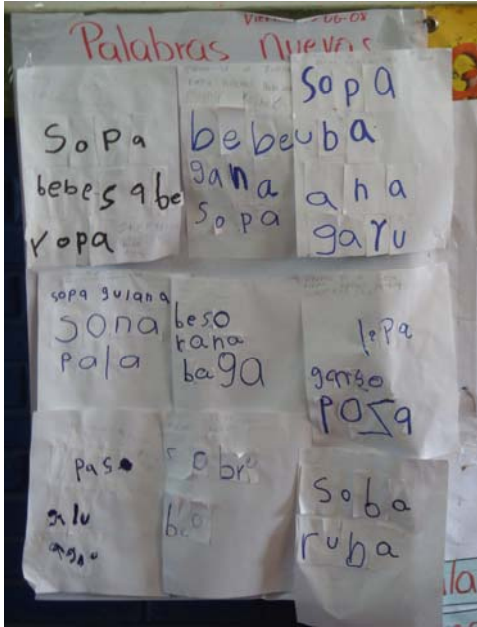 Palabras nuevas
sopa
bebe sabe
ropa
bebe
gana
sopa
sopa
uba
ana
garu
sopa guiana
sona
pala
beso
rana
baga
garso
poza
paso
galu
sobre
soba
ruba
la